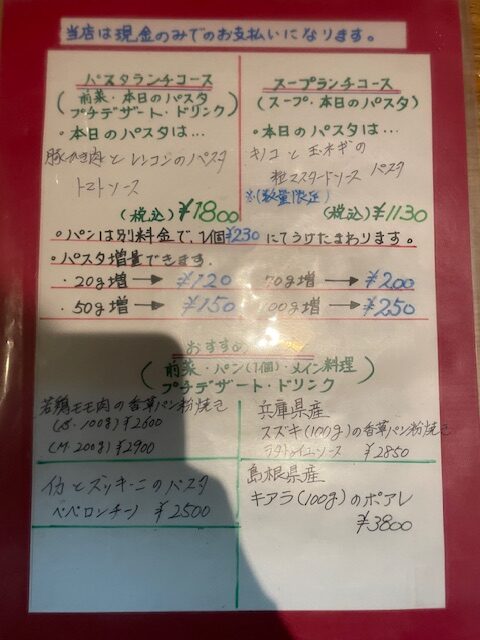 当店は現金のみでのお支払いになります。
パスタランチコース
(前菜・本日のパスタ
プチデザート・ドリンク)
・本日のパスタは…
豚ひき肉とレンコンのパスタ
トマトソース
(税込)¥1800
スープランチコース
(スープ・本日のパスタ)
・本日のパスタは…
キノコと玉ネギの
粒マスタードソース パスタ
※(数量限定)
(税込)¥1130
・パンは別料金で、1個¥230にてうけたまわります。
・パスタ増量できます.
・20g増→¥120 70g増→¥200
・50g増→¥150 100g増→¥250
おすすめ
(前菜・パン(1個)・メイン料理
プチデザート・ドリンク)
若鶏モモ肉の香草パン粉焼き
(S・100g)¥2600
(M・200g)¥2900
兵庫県産
スズキ(100g)の香草パン粉焼き
ラタトゥイユソース ¥2850
イカとズッキーニのパスタ
ペペロンチーノ ¥2500
島根県産
キアラ(100g)のポアレ
¥3800